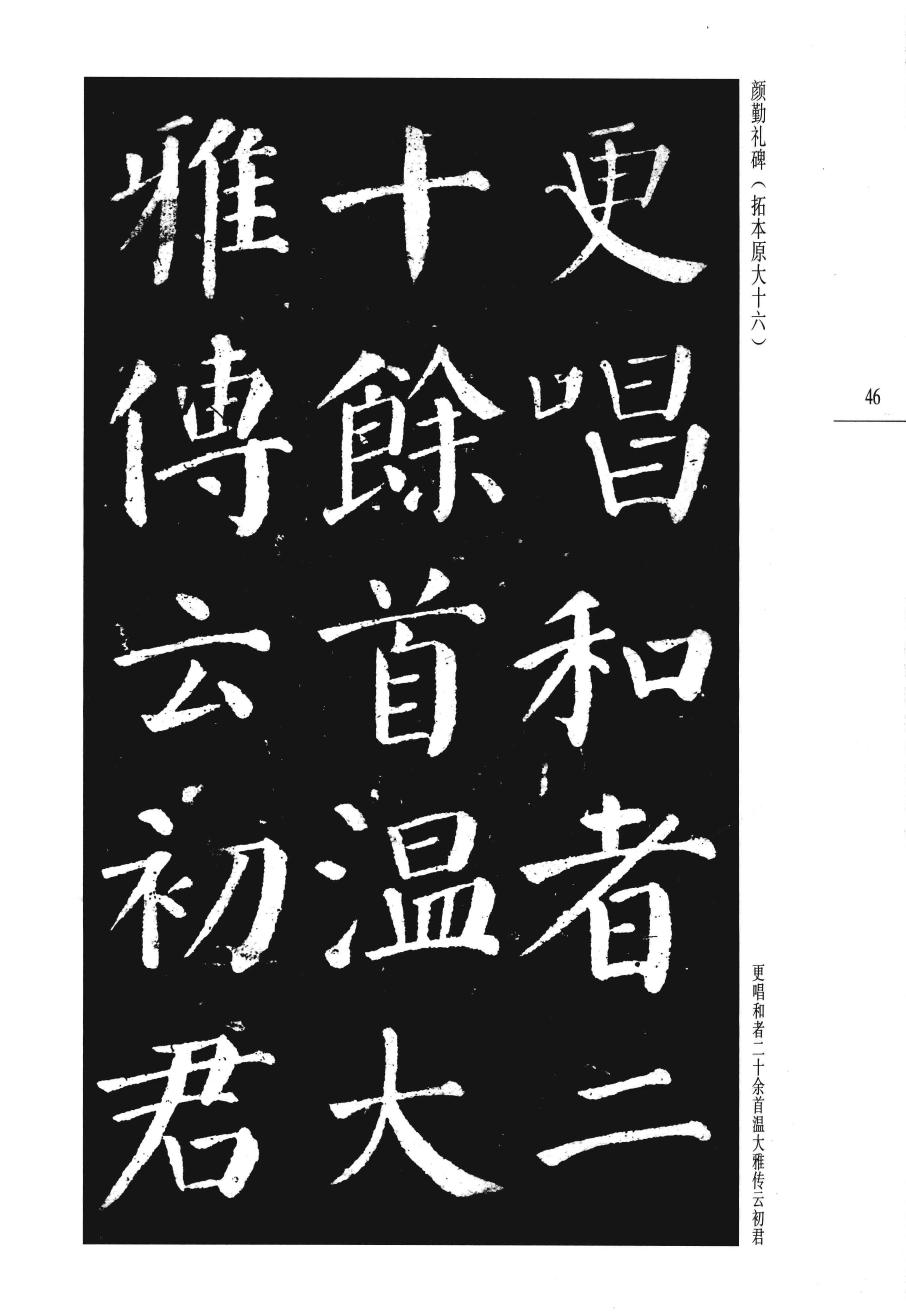 颜勤礼碑（拓本原大十六）
46
更唱和者二
十餘首温大
雅傳云初君
更唱和者二十余首温大雅传云初君